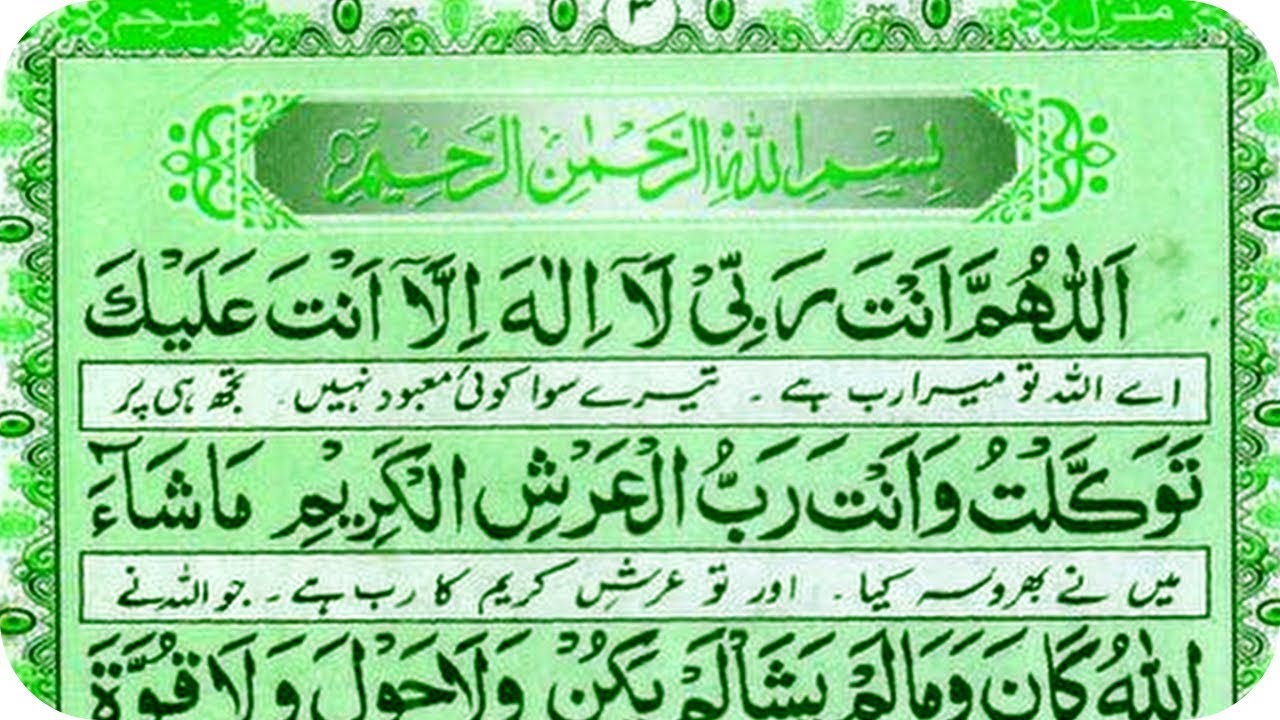 منزل ۳ مترجم
بِسْمِ اللهِ الرَّحْمٰنِ الرَّحِيْمِ
اَللّٰهُمَّ اَنْتَ رَبِّيْ لَآ اِلٰهَ اِلَّآ اَنْتَ عَلَيْكَ
اے اللہ تو میرا رب ہے ۔ تیرے سوا کوئی معبود نہیں ۔ تجھ ہی پر
تَوَكَّلْتُ وَاَنْتَ رَبُّ الْعَرْشِ الْكَرِيْمِ مَاشَآءَ
میں نے بھروسہ کیا ۔ اور تو عرشِ کریم کا رب ہے ۔ جو اللہ نے
اللهُ كَانَ وَمَالَمْ يَشَاْلَمْ يَكُنْ وَلَاحَوْلَ وَلَا قُوَّةَ